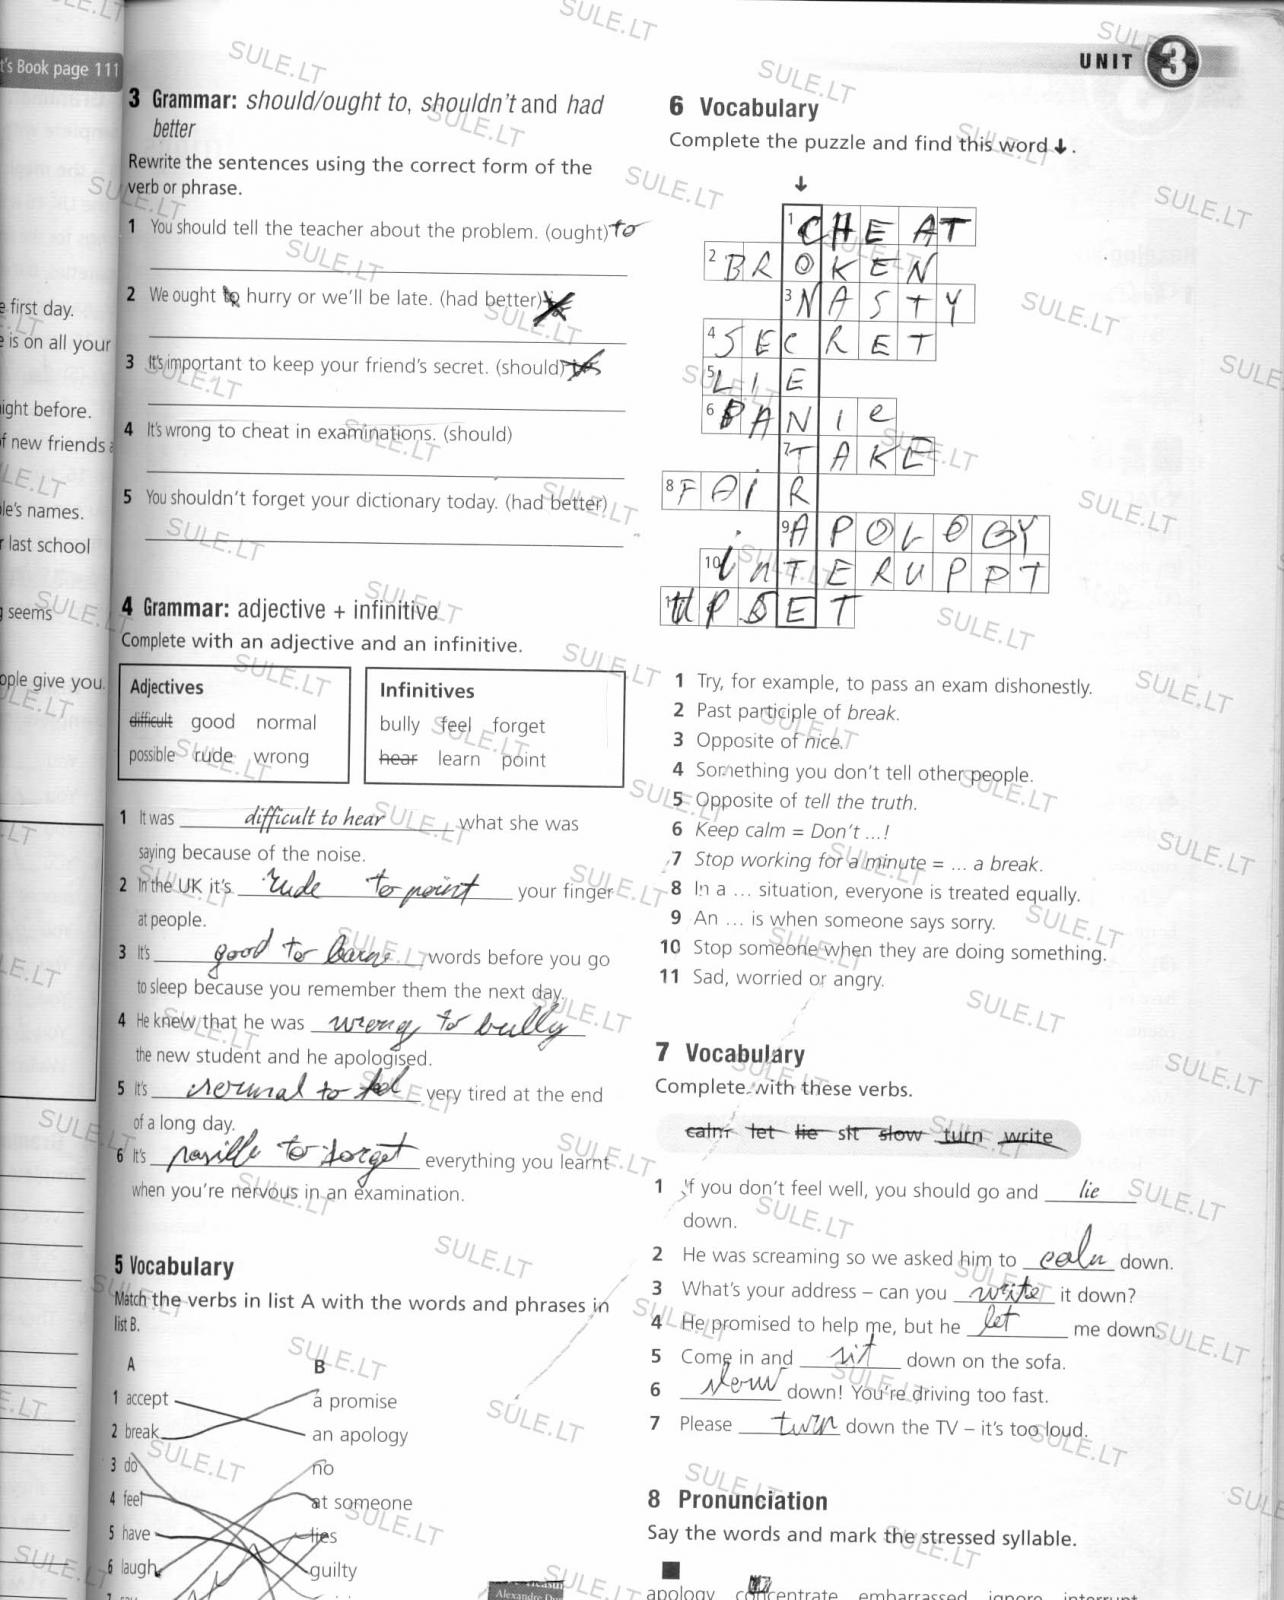 t's Book page 111
UNIT 3
e first day.
e is on all your
ight before.
f new friends a
le's names.
r last school
g seems
ople give you.
3 Grammar: should/ought to, shouldn't and had
better
Rewrite the sentences using the correct form of the
verb or phrase.
1 You should tell the teacher about the problem. (ought) to
2 We ought to hurry or we'll be late. (had better)
3 It's important to keep your friend's secret. (should)
4 It's wrong to cheat in examinations. (should)
5 You shouldn't forget your dictionary today. (had better)
4 Grammar: adjective + infinitive
Complete with an adjective and an infinitive.
Adjectives
difficult good normal
possible rude wrong
Infinitives
bully feel forget
hear learn point
1 It was difficult to hear what she was
saying because of the noise.
2 In the UK it's rude to point your finger
at people.
3 It's good to learn words before you go
to sleep because you remember them the next day.
4 He knew that he was wrong to bully
the new student and he apologised.
5 It's normal to feel very tired at the end
of a long day.
6 It's possible to forget everything you learnt
when you're nervous in an examination.
5 Vocabulary
Match the verbs in list A with the words and phrases in
list B.
A B
1 accept a promise
2 break an apology
3 do no
4 feel at someone
5 have lies
6 laugh guilty
6 Vocabulary
Complete the puzzle and find this word ↓.
↓
1 CHEAT
2 BROKEN
3 NASTY
4 SECRET
5 LIE
6 PANIc
7 TAKE
8 FAIR
9 APOLOGY
10 inTERUPPT
11 UPSET
1 Try, for example, to pass an exam dishonestly.
2 Past participle of break.
3 Opposite of nice.
4 Something you don't tell other people.
5 Opposite of tell the truth.
6 Keep calm = Don't ...!
7 Stop working for a minute = ... a break.
8 In a ... situation, everyone is treated equally.
9 An ... is when someone says sorry.
10 Stop someone when they are doing something.
11 Sad, worried or angry.
7 Vocabulary
Complete with these verbs.
calm let lie sit slow turn write
1 If you don't feel well, you should go and lie
down.
2 He was screaming so we asked him to calm down.
3 What's your address – can you write it down?
4 He promised to help me, but he let me down.
5 Come in and sit down on the sofa.
6 slow down! You're driving too fast.
7 Please turn down the TV – it's too loud.
8 Pronunciation
Say the words and mark the stressed syllable.
apology concentrate embarrassed ignore interrupt
SULE.LT